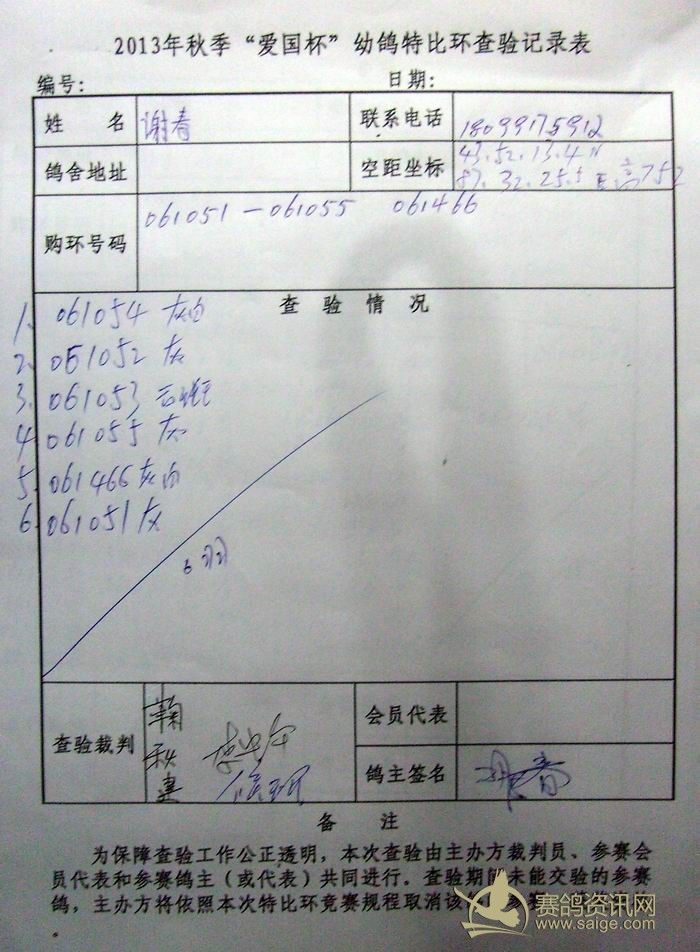 2013年秋季“爱国杯”幼鸽特比环查验记录表
编号: 日期:
姓 名 谢春 联系电话 18099175912
鸽舍地址 空距坐标 43.52.13.4N
87.32.25.5E 高752
购环号码 061051—061055 061466
查 验 情 况
1. 061054 灰白
2. 061052 灰
3. 061053
4. 061055 灰
5. 061466 灰白
6. 061051 灰
6羽
查验裁判 会员代表
鸽主签名 谢春
备 注
为保障查验工作公正透明，本次查验由主办方裁判员、参赛会
员代表和参赛鸽主（或代表）共同进行。查验期间未能交验的参赛
鸽，主办方将依照本次特比环竞赛规程取消该
赛鸽资讯网
www.saige.com